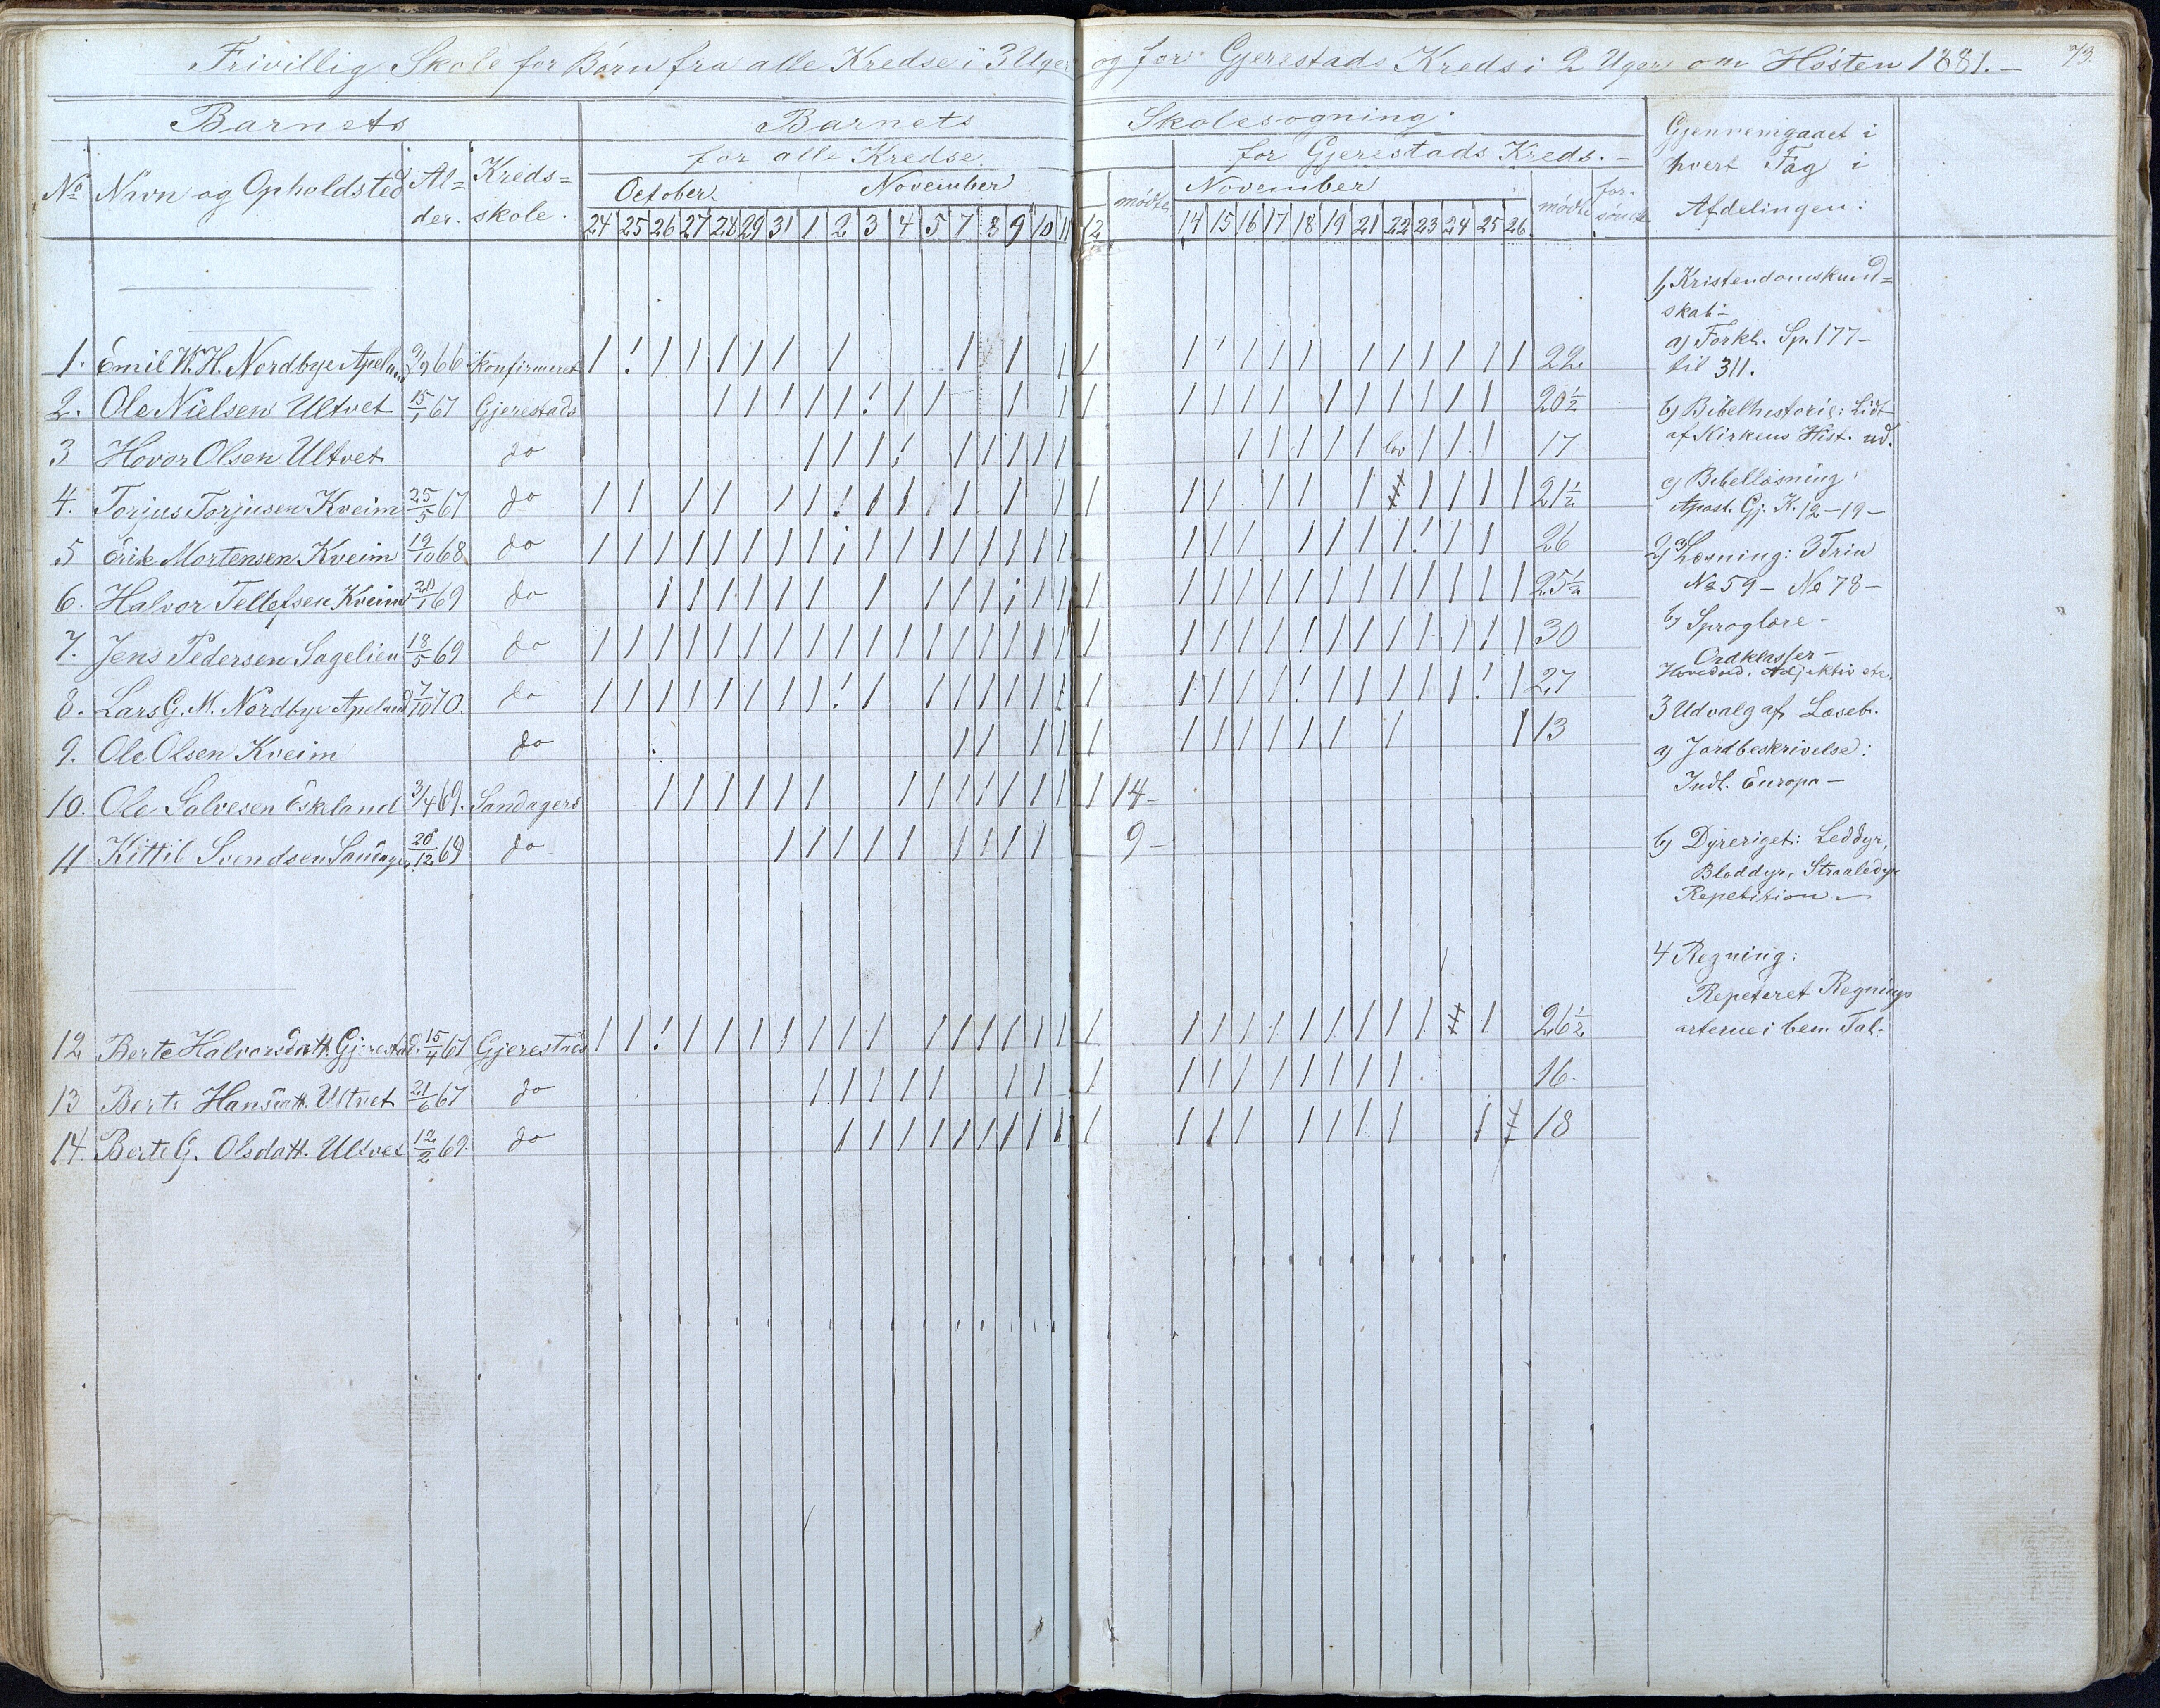 Frivillig Skole for Børn fra alle Kredse i 3 Uger og for Gjerestads Kreds i 2 Uger om Høsten 1881.—
73.
Barnets
Barnets Skolesøgning.
for alle Kredse
for Gjerestads Kreds.—
Gjennemgaaet i
hvert Fag i
Afdelingen:
No Navn og Opholdsted Al=der. Kreds=skole.
October November mødte November mødte for-sømte
24 25 26 27 28 29 31 1 2 3 4 5 7 8 9 10 11 12 14 15 16 17 18 19 21 22 23 24 25 26
1. Emil W. H. Nordbye Apeland 9/9 66 konfirmeret 22
2. Ole Nielsen Ultvet 15/1 67 Gjerestads 20 1/2
3 Hovor Olsen Ultvet do 17
4. Torjus Torjusen Kveim 25/5 67 do 21 1/2
5 Erik Mortensen Kveim 19/10 68 do 26
6. Halvor Tellefsen Kveim 20/1 69 do 25 1/2
7. Jens Pedersen Sagelien 18/5 69 do 30
8. Lars G. M. Nordbye Apeland 7/10 70. do 27
9. Ole Olsen Kveim do 13
10. Ole Salvesen Eskeland 3/4 69. Sandagers 14-
11 Kittil Svendsen Sandager 20/12 69 do 9-
12 Berte Halvorsdatt. Gjerestad. 15/4 67 Gjerestads 26 1/2
13 Berte Hansdatt. Ultvet 21/6 67 do 16.
14. Berte G. Olsdatt. Ultvet 12/2 69. do 18
1, Kristendomskund=
skab-
a) Forkl. Sp. 177-
til 311.
b) Bibelhistorie: Lidt
af Kirkens Hist. ud.
c) Bibellæsning:
Apost. Gj. K. 12-19-
2, a) Læsning: 3 Trin
No 59 - No 78-
b) Sproglære-
Ordklasser-
Hovedord, Adjektiv etc.
3 Udvalg af Læseb.
a) Jordbeskrivelse:
Indl. Europa-
b) Dyreriget: Leddyr,
Bløddyr, Straaledyr
Repetition—
4 Regning:
Repeteret Regnings
arterne i ben. Tal.